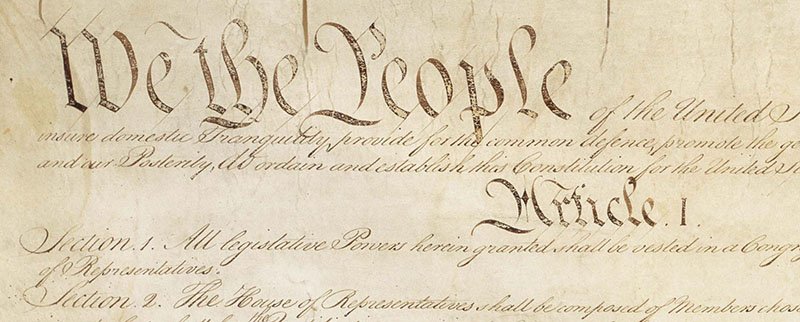 We the People of the United S
insure domestic Tranquility, provide for the common defence, promote the ge
and our Posterity, do ordain and establish this Constitution for the United St
Article. I.
Section. 1. All legislative Powers herein granted shall be vested in a Congr
of Representatives.
Section. 2. The House of Representatives shall be composed of Members chose